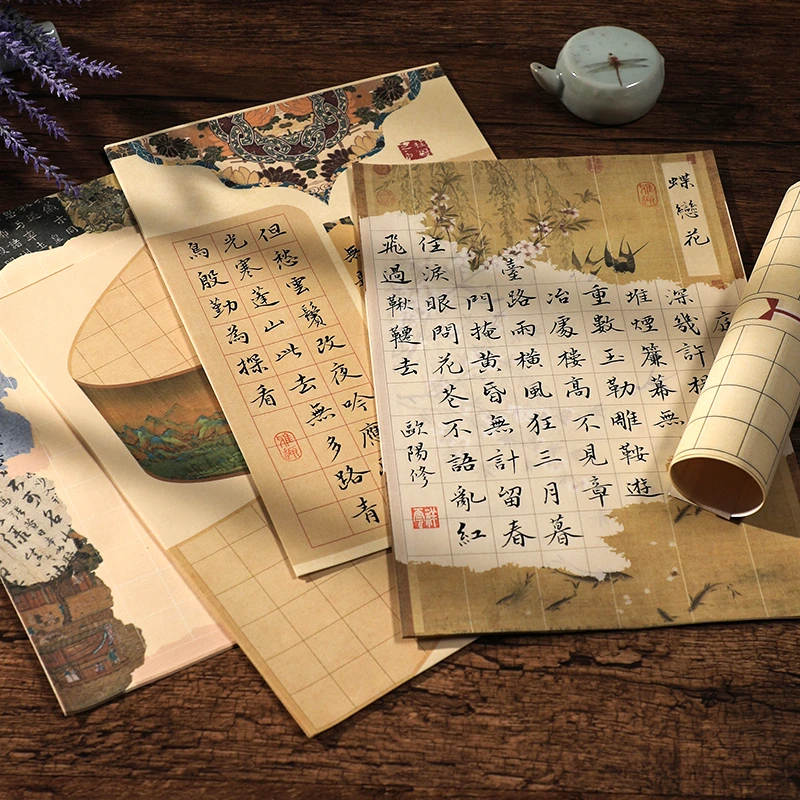 蝶戀花
庭
深幾許楊
堆煙簾幕無
重數玉勒雕鞍遊
冶處樓高不見章
臺路雨橫風狂三月暮
門掩黃昏無計留春
住淚眼問花花不語亂紅
飛過鞦韆去
歐陽修
無
但愁雲鬢改夜吟應
光寒蓬山此去無多路青
鳥殷勤為探看